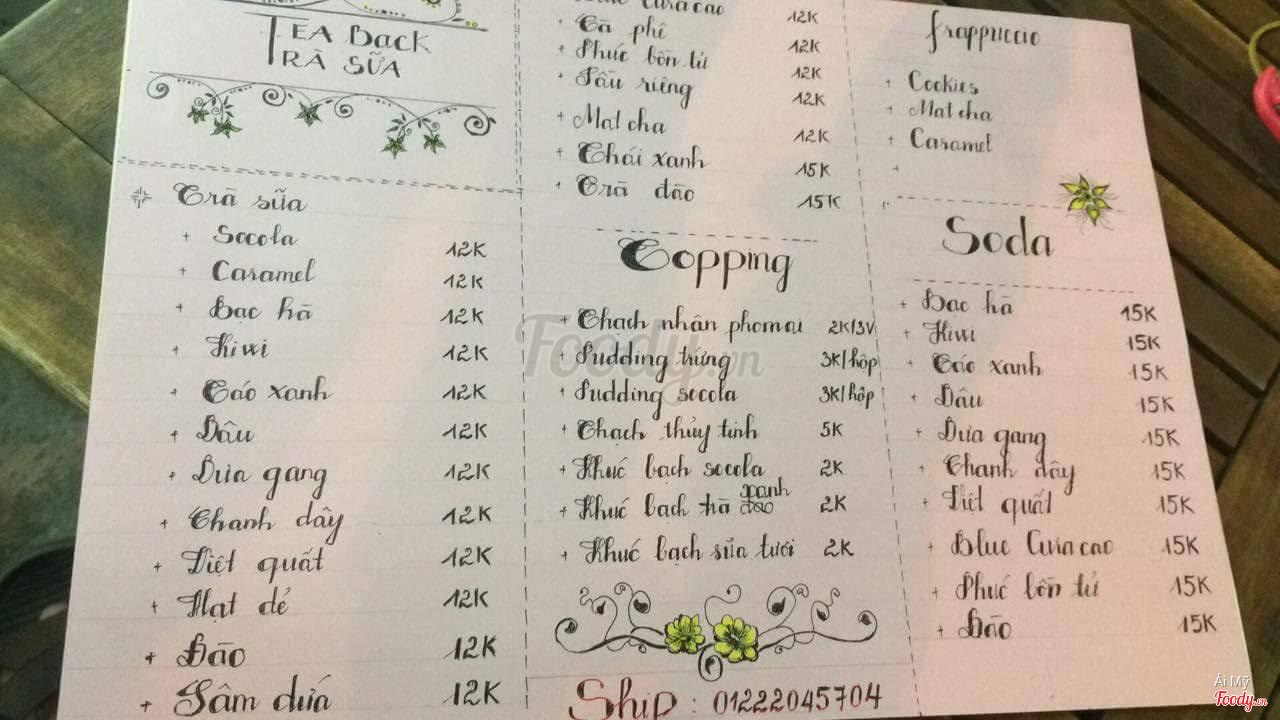 TEA BACK
TRÀ SỮA
Trà sữa
+ Socola 12K
+ Caramel 12K
+ Bạc hà 12K
+ Kiwi 12K
+ Táo xanh 12K
+ Dâu 12K
+ Dưa gang 12K
+ Chanh dây 12K
+ Việt quất 12K
+ Hạt dẻ 12K
+ Đào 12K
+ Dâm dứá 12K
Blue Curacao 12K
+ Cà phê 12K
+ Phúc bồn tử 12K
+ Sầu riêng 12K
+ Matcha 12K
+ Thái xanh 15K
+ Trà đào 15K
Topping
+ Thạch nhân phomai 2K/3V
+ Pudding trứng 3K/hộp
+ Pudding socola 3K/hộp
+ Thạch thủy tinh 5K
+ Khúc bạch socola 2K
+ Khúc bạch trà xanh đào 2K
+ Khúc bạch sữa tươi 2K
Ship : 01222045704
frappuccio
+ Cookies
+ Matcha
+ Caramel
+
Soda
+ Bạc hà 15K
+ Kiwi 15K
+ Táo xanh 15K
+ Dâu 15K
+ Dưa gang 15K
+ Chanh dây 15K
+ Việt quất 15K
+ Blue Curacao 15K
+ Phúc bồn tử 15K
+ Đào 15K
Foody.vn
Ái Mỹ
Foody.vn